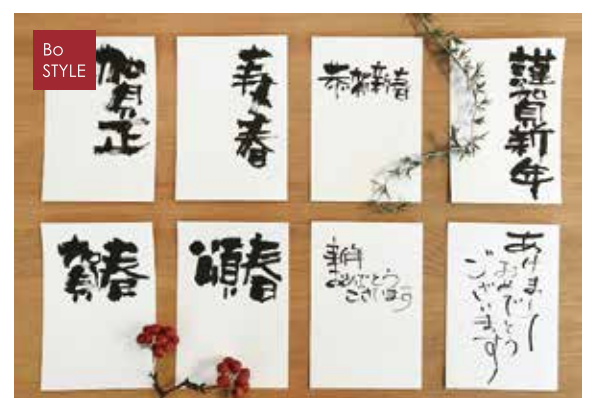 Bo
STYLE
賀正
寿春
恭賀新春
謹賀新年
賀春
頌春
新年
おめでとう
ございます
あけまして
おめでとう
ございます